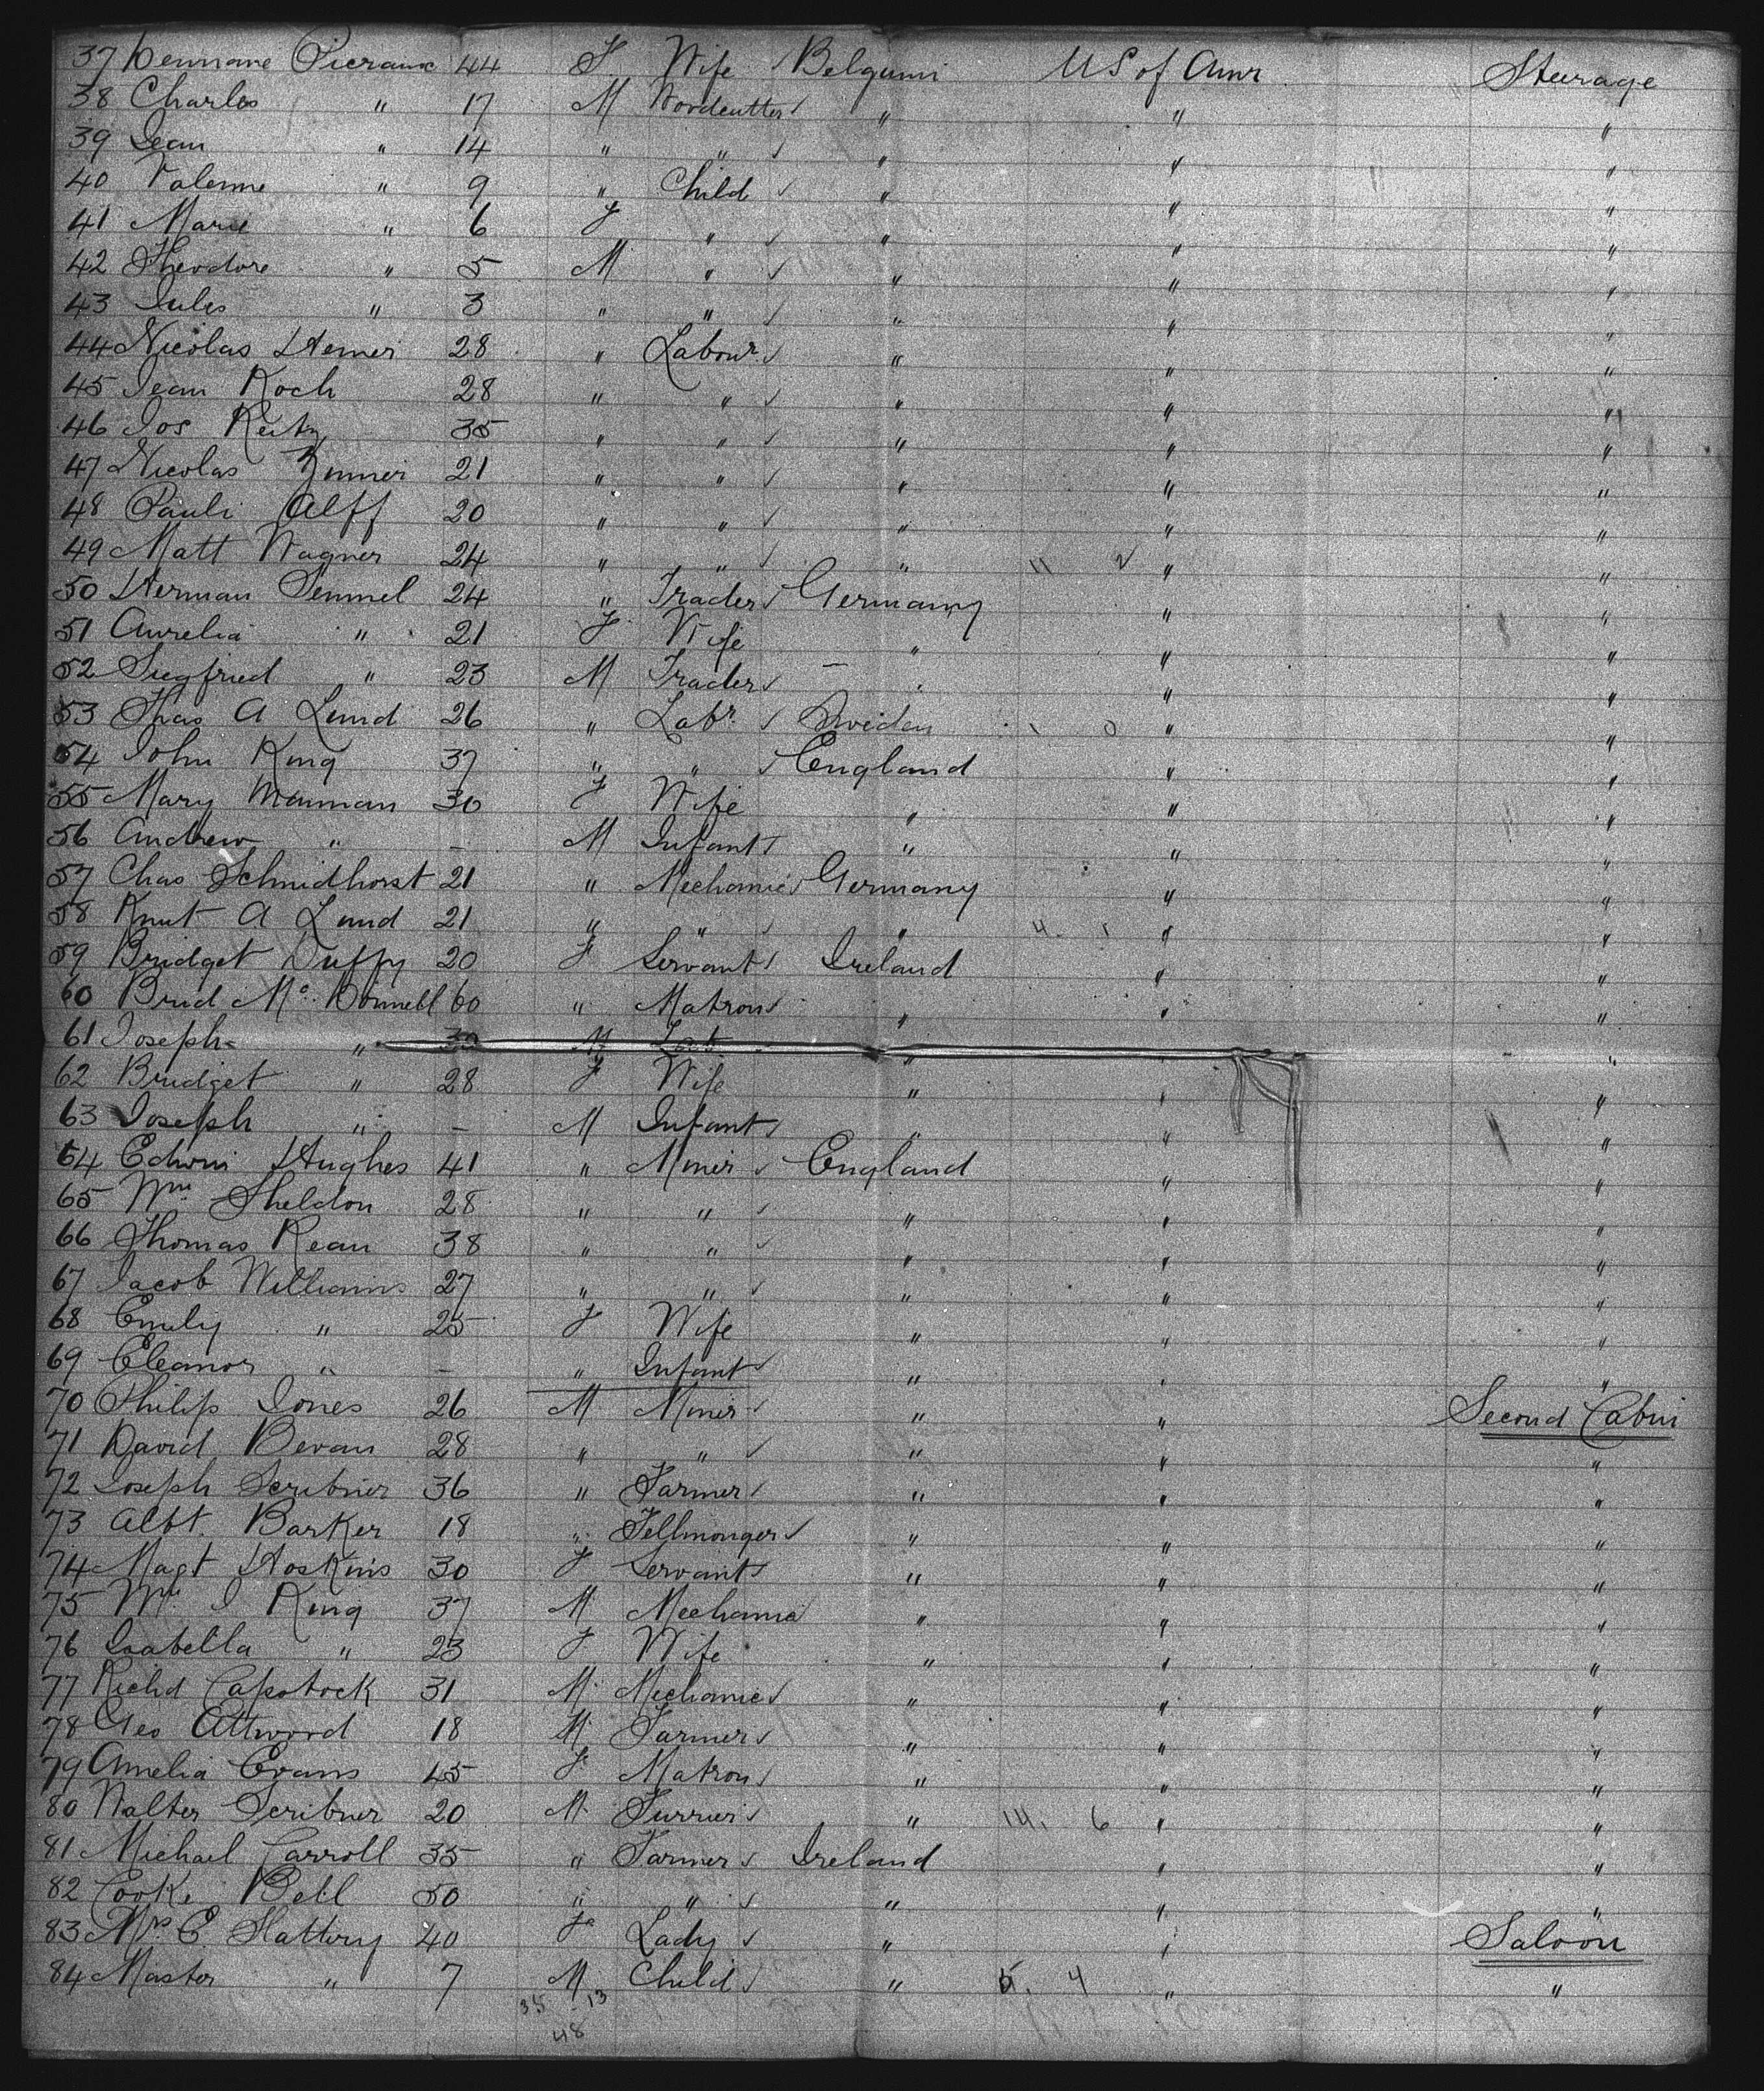 37 Dennane Pieraux 44 F Wife Belgium US of Amr Steerage
38 Charles " 17 M Woodcutter " " "
39 Jean " 14 " " " " "
40 " 9 " Child " " "
41 Marie " 6 F " " " "
42 Theodore " 5 M " " " "
43 Jules " 3 " " " " "
44 Nicolas Hemer 28 " Labour " " "
45 Jean Koch 28 " " " " "
46 Jos Reitz 35 " " " " "
47 Nicolas 21 " " " " "
48 Pauli Alff 20 " " " " "
49 Matt Wagner 24 " " " 11 2 " "
50 Herman Semmel 24 " Trader Germany " "
51 Aurelia " 21 F Wife " " "
52 Siegfried " 23 M Trader " " "
53 A Lund 26 " Labr Sweden " "
54 John King 37 " " England " "
55 Mary 30 F Wife " " "
56 Andrew " - M Infant " " "
57 Chas Schmidhorst 21 " Mechanic Germany " "
58 Knut A Lund 21 " " " 4 1 " "
59 Bridget Duffy 20 F Servant Ireland " "
60 Brid Mc Donnell 60 " Matron " " "
61 Joseph " M " " "
62 Bridget " 28 F Wife " " "
63 Joseph " - M Infant " " "
64 Edwin Hughes 41 " Miner England " "
65 Wm Sheldon 28 " " " " "
66 Thomas Rean 38 " " " " "
67 Jacob Williams 27 " " " " "
68 Emily " 25 F Wife " " "
69 Eleanor " - " Infant " " "
70 Philip Jones 26 M Miner " " Second Cabin
71 David Bevan 28 " " " " "
72 Joseph Scribner 36 " Farmer " " "
73 Albt. Barker 18 " Fellmonger " " "
74 Magt Hoskins 30 F Servant " " "
75 J King 37 M Mechanic " " "
76 Isabella " 23 F Wife " " "
77 Richd Capstock 31 M Mechanic " " "
78 Geo Attword 18 M Farmer " " "
79 Amelia Evans 45 F Matron " " "
80 Walter Scribner 20 M Furrier " 14. 6 " "
81 Michael Carroll 35 " Farmer Ireland " "
82 Cooke Bell 50 " " " " "
83 Mrs E Slattery 40 F Lady " " Saloon
84 Master " 7 M Child " 5. 4 " "
35 13
48